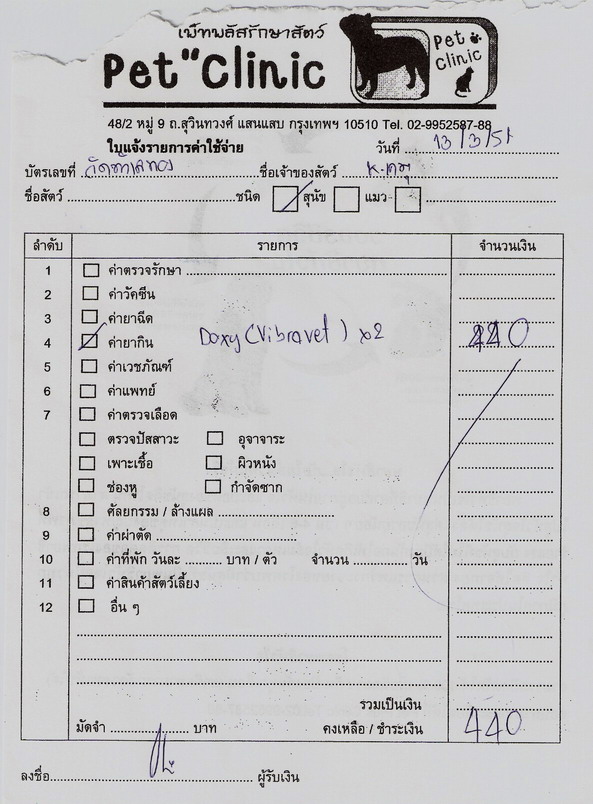 เพ็ทพลัสรักษาสัตว์
Pet"Clinic
Pet
Clinic
48/2 หมู่ 9 ถ.สุวินทวงศ์ แสนแสบ กรุงเทพฯ 10510 Tel. 02-9952587-88
ใบแจ้งรายการค่าใช้จ่าย วันที่ 13/3/51
บัตรเลขที่ ชื่อเจ้าของสัตว์
ชื่อสัตว์ ชนิด สุนัข แมว
ลำดับ รายการ จำนวนเงิน
1 ค่าตรวจรักษา
2 ค่าวัคซีน
3 ค่ายาฉีด
4 ค่ายากิน Doxy (Vibravet) x2 440
5 ค่าเวชภัณฑ์
6 ค่าแพทย์
7 ค่าตรวจเลือด
ตรวจปัสสาวะ อุจาจาระ
เพาะเชื้อ ผิวหนัง
ช่องหู กำจัดซาก
8 ศัลยกรรม / ล้างแผล
9 ค่าผ่าตัด
10 ค่าที่พัก วันละ .......... บาท / ตัว จำนวน .............. วัน
11 ค่าสินค้าสัตว์เลี้ยง
12 อื่น ๆ
รวมเป็นเงิน
มัดจำ ...................... บาท คงเหลือ / ชำระเงิน 440
ลงชื่อ ผู้รับเงิน